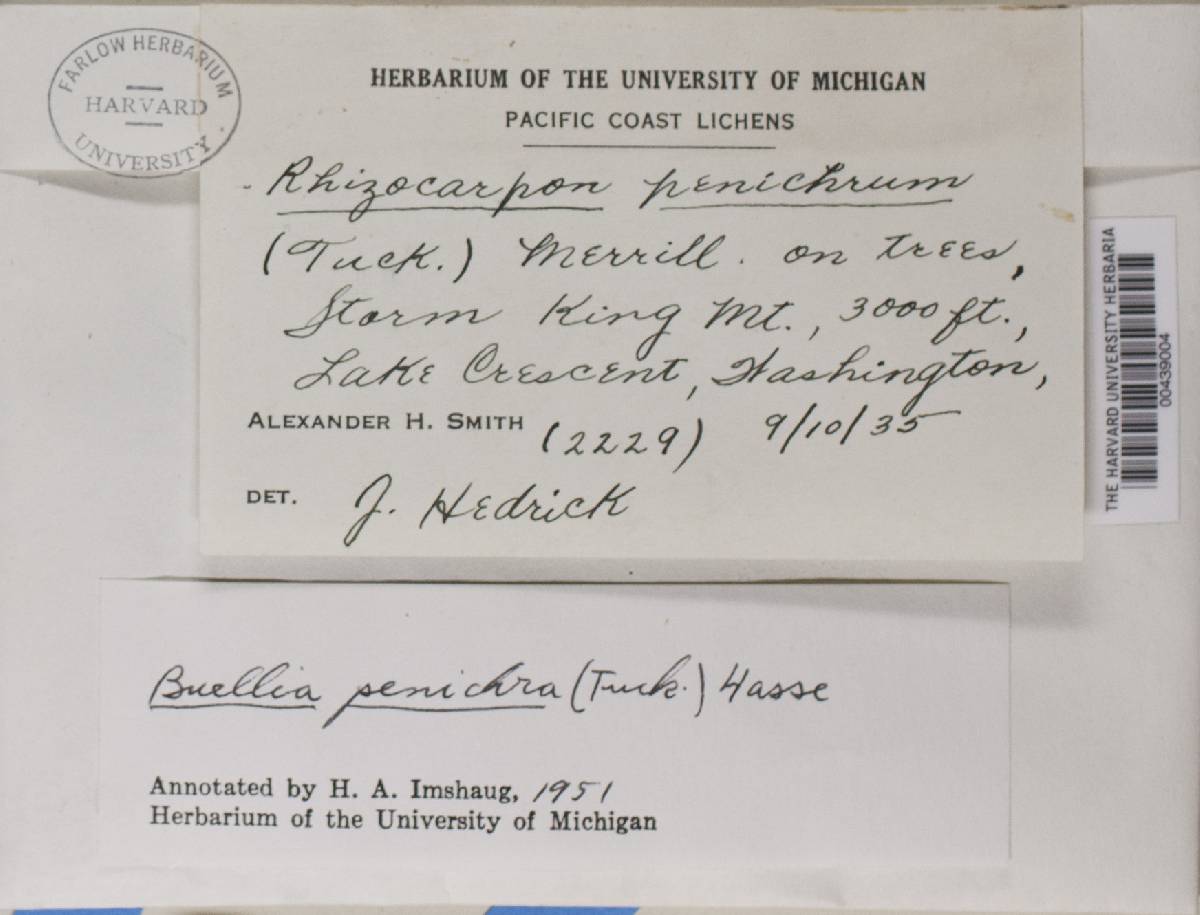 FARLOW HERBARIUM
HARVARD
UNIVERSITY
HERBARIUM OF THE UNIVERSITY OF MICHIGAN
PACIFIC COAST LICHENS
Rhizocarpon penichrum
(Tuck.) Merrill. on trees,
Storm King Mt., 3000 ft.,
Lake Crescent, Washington,
ALEXANDER H. SMITH (2229) 9/10/35
DET. J. Hedrick
THE HARVARD UNIVERSITY HERBARIA
00439004
Buellia penichra (Tuck.) Hasse
Annotated by H. A. Imshaug, 1951
Herbarium of the University of Michigan